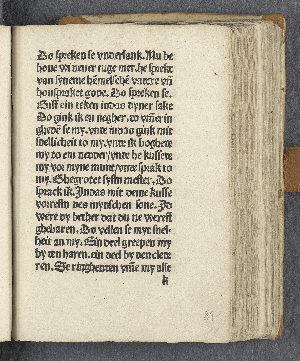 Do spreken se vnderlank. Nu be
houe wi nener tuge mer. he sprekt
van syneme hēmelschē vadere vñ
honspraket gode. Do spreken se.
Giff ein teken iudas dyner sake
Do gink ik en negher. to vmēr in
ghede se my. vnte iudas gink mit
snellicheit to my. vnte ik boghete
my to em nedder / vnte he kussete
my vor myne munt / vnte sprak to
my. Ghegrotet systu mester. Do
sprack ik. Iudas mit deme kusse
vorrestu des mynschen sone. Id
were dy bether dat du ne werest
gheboren. Do vellen se myt snel-
heit an my. Ein deel grepen my
by den haren. ein deel by den clede
ren. Se ringheden vmē my alse
k